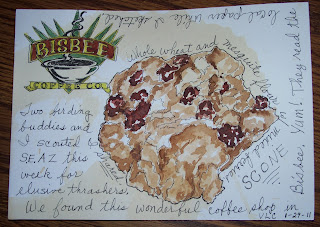 BISBEE
COFFEE CO.
Whole wheat and mesquite flour
mixed berries
SCONE
Two birding
buddies and
I scouted to
SE.AZ this
week for
elusive thrashers.
We found this wonderful coffee shop in
Bisbee, Yum! They read the
local paper while I sketched.
1-29-11